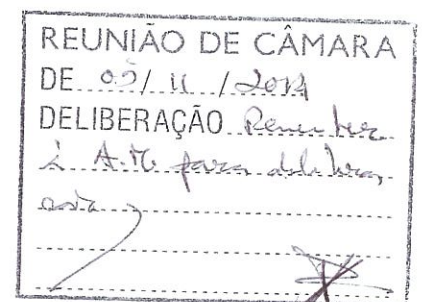 REUNIÃO DE CÂMARA
DE 05/ 11 /2014
DELIBERAÇÃO Remeter
à A.M. para delibera